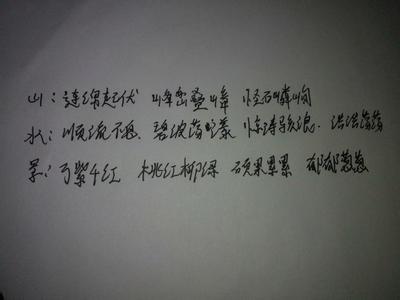 山：连绵起伏 峰峦叠嶂 怪石嶙峋
水：川流不息 碧波荡漾 惊涛骇浪 浩浩荡荡
景：万紫千红 桃红柳绿 硕果累累 郁郁葱葱